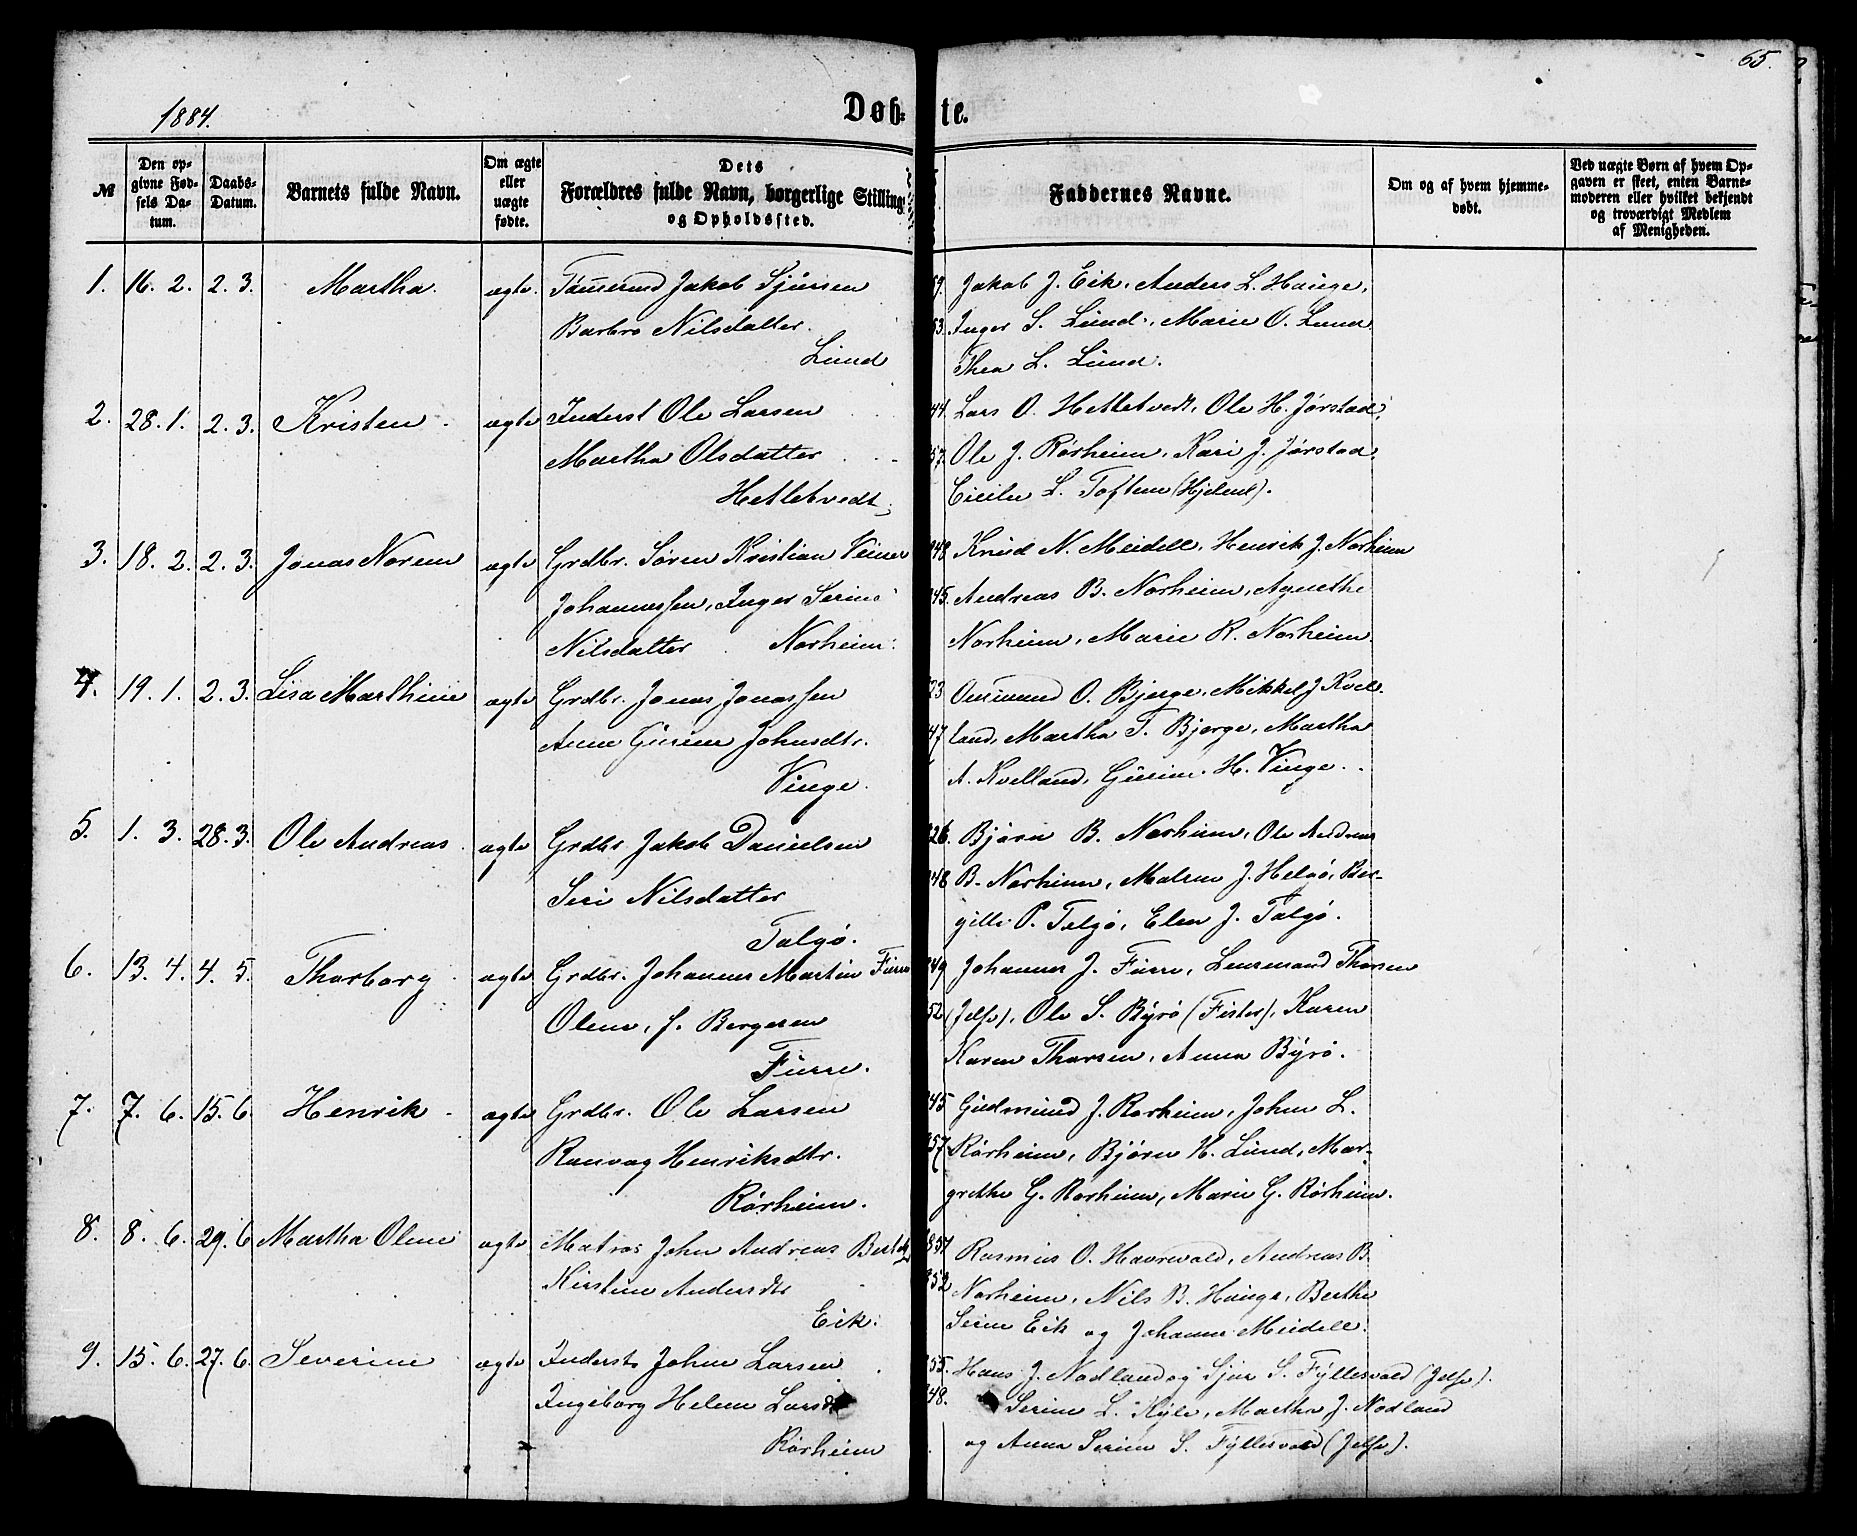 65.
1884.
Døb-te.
№
Den opgivne Fødsels Datum.
Daabs-Datum.
Barnets fulde Navn.
Om ægte eller uægte fødte.
Dets Forældres fulde Navn, borgerlige Stilling og Opholdssted.
Faddernes Navne.
Om og af hvem hjemmedøbt.
Ved uægte Børn af hvem Opgaven er skeet, enten Barnemoderen eller hvilket bekjendt og troværdigt Medlem af Menigheden.
1. 16. 2. 2. 3. Martha. ægte. Jakob Sjursen
Barbro Nilsdatter.
Lund
59. Jakob J. Eik, Anders L. Hauge,
53. Inger S. Lund, Marie O. Lund
Thea L. Lund.
2. 28. 1. 2. 3. Kristen ægte Inderst Ole Larsen
Martha Olsdatter
Hetletvedt
44. Lars O. Hetletvedt, Ole H. Jørstad,
57. Ole J. Rørheim, Kari J. Jørstad,
L. Toften (Hjelmel).
3. 18. 2. 2. 3. Jonas Norem ægte Grdbr. Søren Kristian
Johannessen, Inger Serine
Nilsdatter Norheim.
48. Knud N. Meidell, Henrik J. Norheim
45. Andreas B. Norheim, Agnethe
Norheim, Marie R. Norheim.
4. 19. 1. 2. 3. Lisa Marthine ægte Grdbr. Jonas Jonassen
Anne Gurine Johnsdtr.
Vinge.
23 O. Bjerge, Mikkel J. Kvel-
47 land, Martha T. Bjerge, Martha
A. Kvelland, Gurine H. Vinge.
5. 1. 3. 28. 3. Ole Andreas ægte Grdbr. Jakob Danielsen
Siri Nilsdatter
Talgø.
26. Bjørn B. Norheim, Ole Andreas
48 B. Norheim, Malene J. Helgø, Ber-
gitte P. Talgø, Elen J. Talgø.
6. 13. 4. 4. 5. Thorborg ægte Grdbr. Johannes Martin Furre
Olene, f. Bergesen
Furre.
49 Johannes J. Furre, Thorsen
52 (Jelse), Ole S. Byrø (Fister), Karen
Karen Thorsen, Anna Byrø.
7. 7. 6. 15. 6. Henrik ægte Grdbr. Ole Larsen
Ranvag Henriksdtr.
Rørheim.
45 Gudmund J. Rørheim, John L.
57 Rørheim, Bjørn H. Lund, Mar-
grethe G. Rørheim, Marie G. Rørheim.
8. 8. 6. 29. 6 Martha Oline ægte Matros John Andreas
Kirstine Andersdtr
Eik.
857 Rasmus O. Havrevold, Andreas B.
852 Norheim, Nils B. Hauge, Berthe
Serine Eik og Johanne Meidell.
9. 15. 6. 27. 6. Severine ægte Inderst John Larsen
Ingeborg Helene Larsdt
Rørheim
55. Hans J. Nødland og Sjur S. Fyllesvold (Jelse).
48. Serine L. Kyle, Martha J. Nødland
og Anna Serine S. Fyllesvold (Jelse).